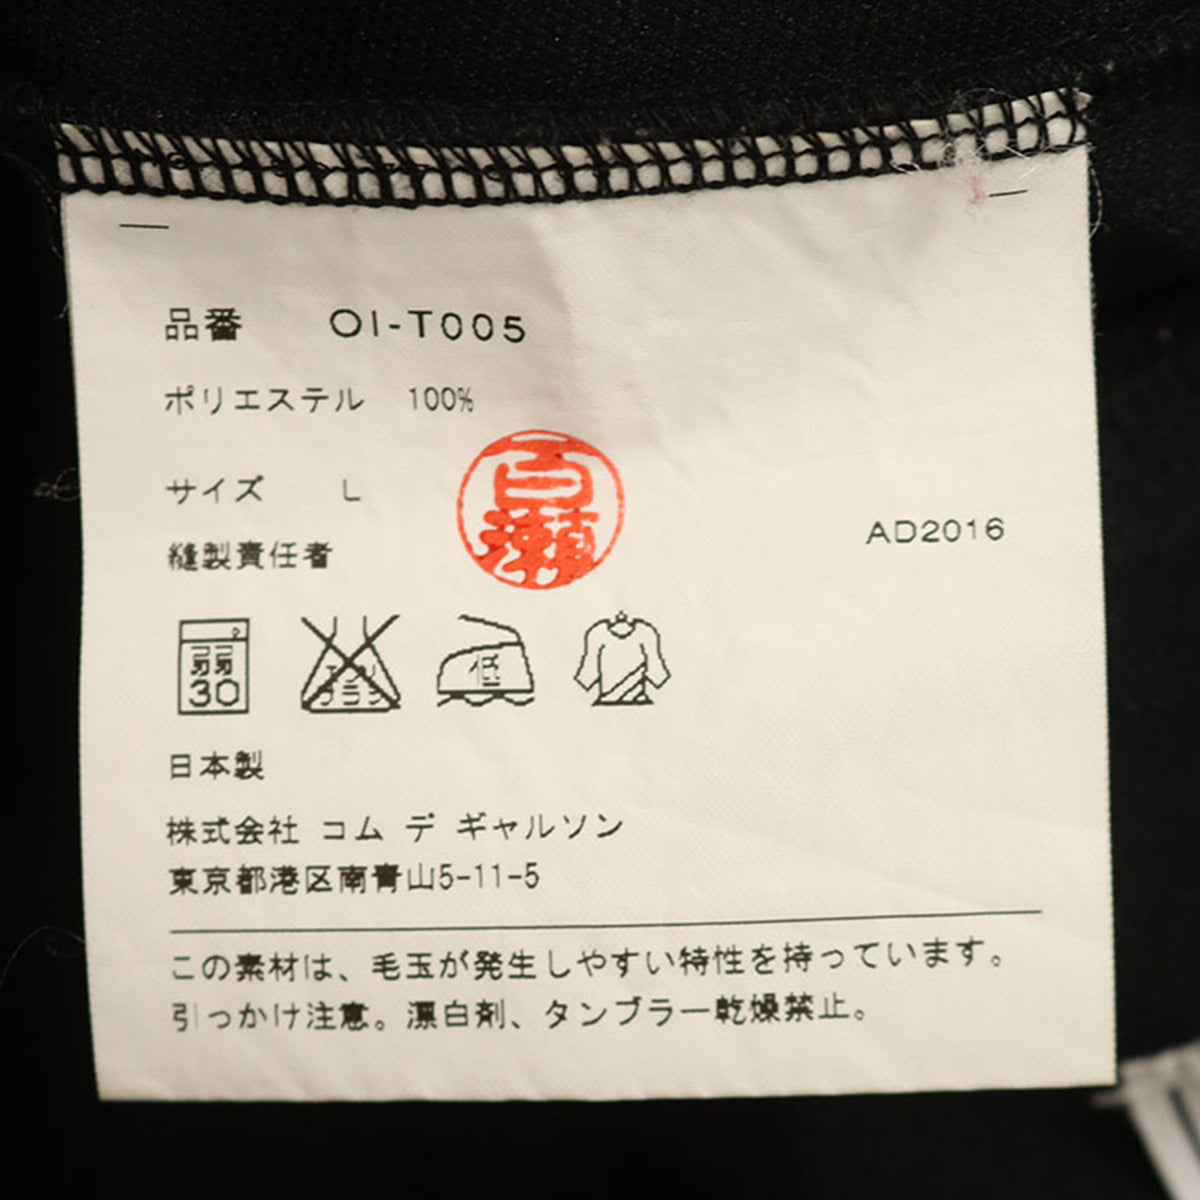 品番 OI-T005
ポリエステル 100%
サイズ L
百瀬
AD2016
縫製責任者
弱
30
エンソ
サラシ
低
日本製
株式会社 コム デ ギャルソン
東京都港区南青山5-11-5
この素材は、毛玉が発生しやすい特性を持っています。
引っかけ注意。漂白剤、タンブラー乾燥禁止。